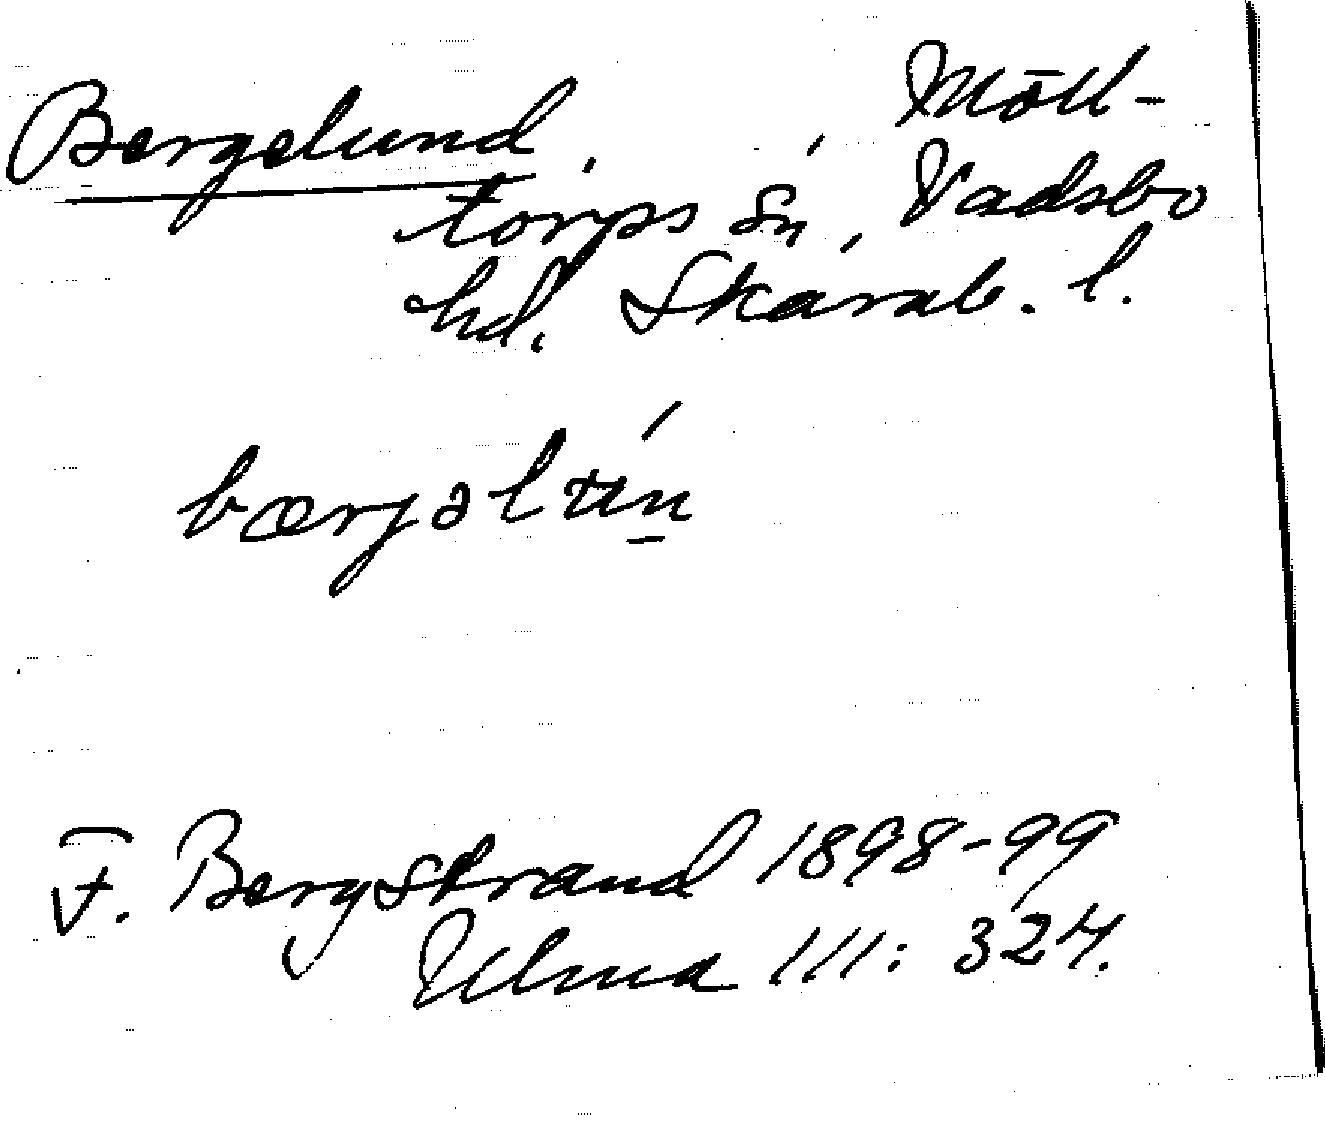 Bergelund, , Möll-
torps sn, Vadsbo
hd. Skarab. l.
bærjəlun
F. Bergstrand 1898-99
Ulma 111: 324.